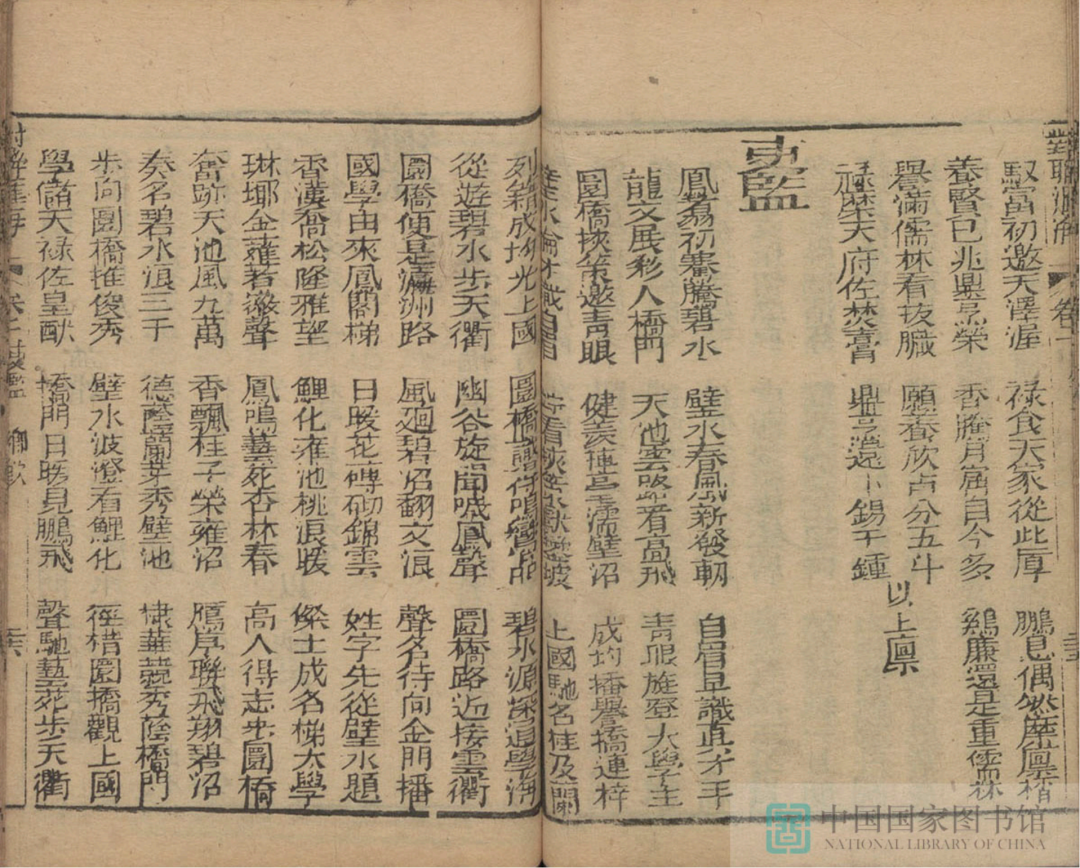 馭富初邀天澤渥 祿食天家從此厚 鵬息偶然摩廩楷
養賢已兆鼎烹榮 香騰月窟自今多 鷄廉還是重儒林
譽滿儒林看拔臓 願香欣占分五斗 以上廩
祿榮天府佐焚膏 鼎烹還卜錫千鍾
貢監
鳳藻初騫騰碧水 璧水春風新發軔 白眉早識真才子
龍文展彩人橋門 天池雲路看高飛 青眼旋登大學生
圜橋挾策邀青眼 健羨搏雲濡壁沼 成均播譽橋連梓
上國馳名桂及蘭
列籍成均光上國 圜橋 碧水源深
從遊碧水步天衢 幽谷旋聞噦鳳聲 圜橋路近接雲衢
圜橋便是瀛洲路 風廻碧沼翻文浪 聲名待向金門播
國學由來鳳閣梯 日暖花磚砌錦雲 姓字先從壁水題
香漢喬松隆雅望 鯉化雍池桃浪暖 傑士成名梯太學
琳琊金薤著徽聲 鳳鳴藝苑杏林春 高人得志步圜橋
奮跡天池風九萬 香飄桂子榮雍沼 鴈序聯飛翔碧沼
奏名碧水浪三千 德蔭蘭芽秀壁池 棣華競秀蔭橋門
步向圜橋推俊秀 壁水波澄看鯉化 徑楷圜橋觀上國
學儲天祿佐皇猷 橋門日暖見鵬飛 聲馳藝苑步天衢
中国国家图书馆
NATIONAL LIBRARY OF CHINA